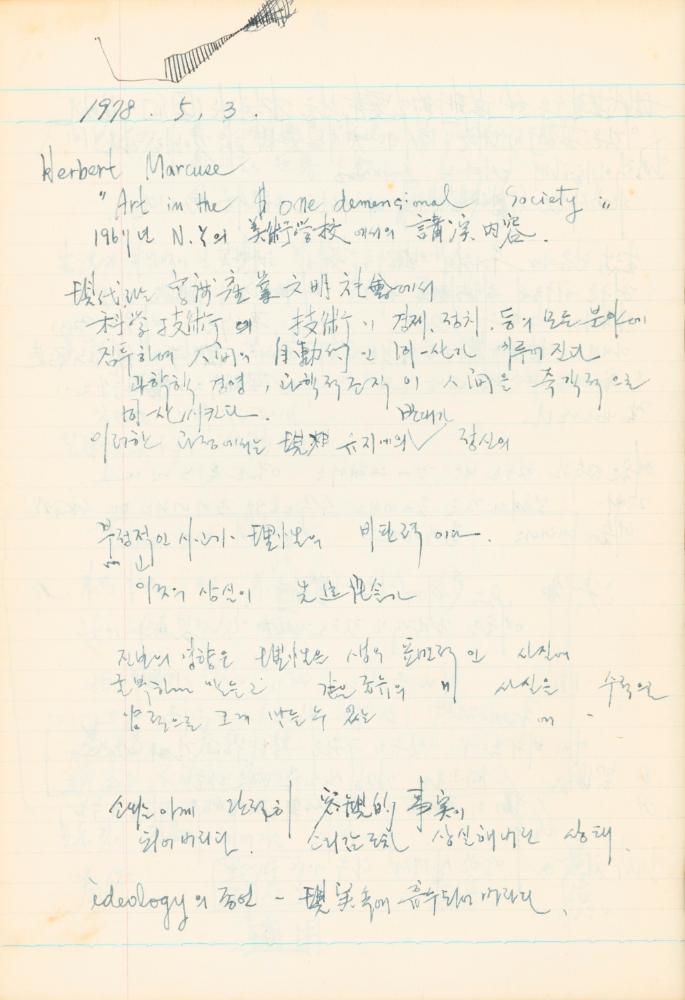 1978. 5, 3.
Herbert Marcuse
"Art in the one demensional Society"
1967년 N.Y의 美術学校에서의 講演 内容.
現代라는 産業文明社會에서
科学技術의 技術이 경제, 정치, 등의 모든 분야에
침투하여 人间의 自動的인 同一化가 이루어진다
과학적 경영, 과학적 조직이 人间을 즉각적으로
同一化시킨다.
이러한 과정에서는 現狀 유지에의 반대가 정신의
부정적인 사고가 理性의 비판력이다.
이것의 상실이
진보의 영향은 理性은 생의 표면적인 사실에
굴복하게 만들고 같은 종류의 더 사실을 수적으로
양적으로 크게 만들 수 있는
소외는 아예 완전히 客観的 事実이
되어버린다. 소외감조차 상실해버린 상태.
ideology의 종언 - 現実속에 흡수되어 버린다.